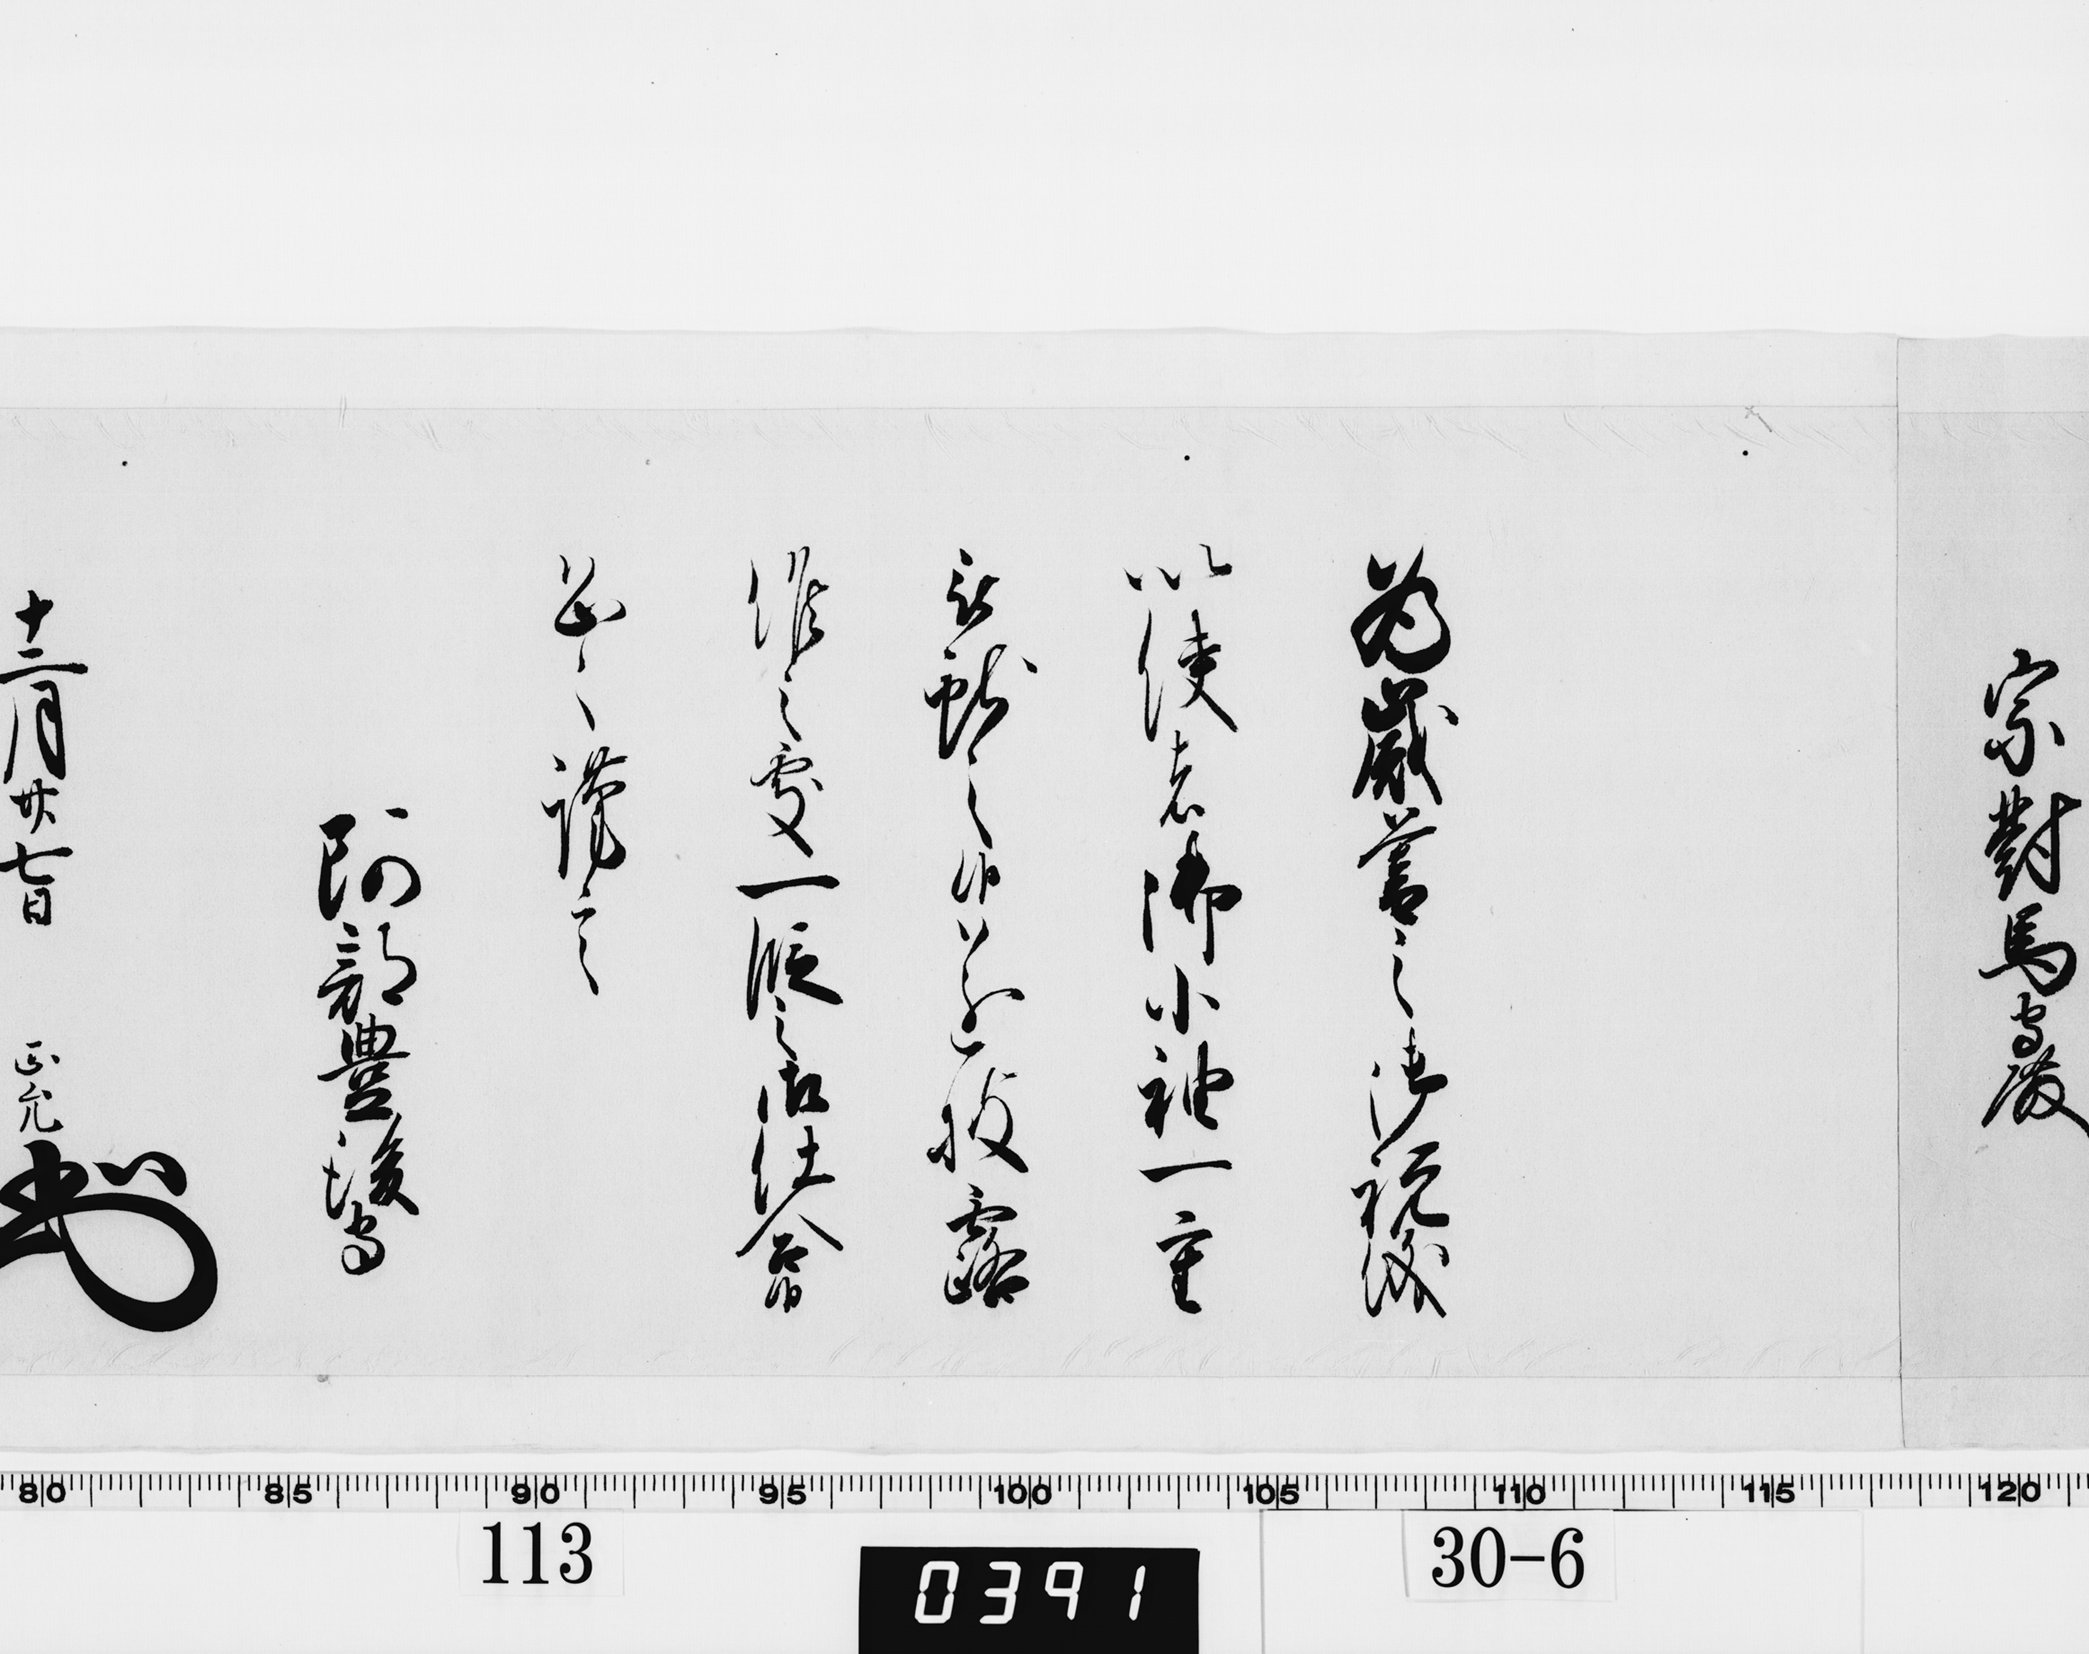 宗對馬守殿
為歳暮之御祝儀
以使者御小袖一重
被献之候遂披露
候之處一段之御仕合候
恐々謹言
阿部豊後守
十二月廿七日 正允
80 85 90 95 100 105 110 115 120
113
0391
30-6